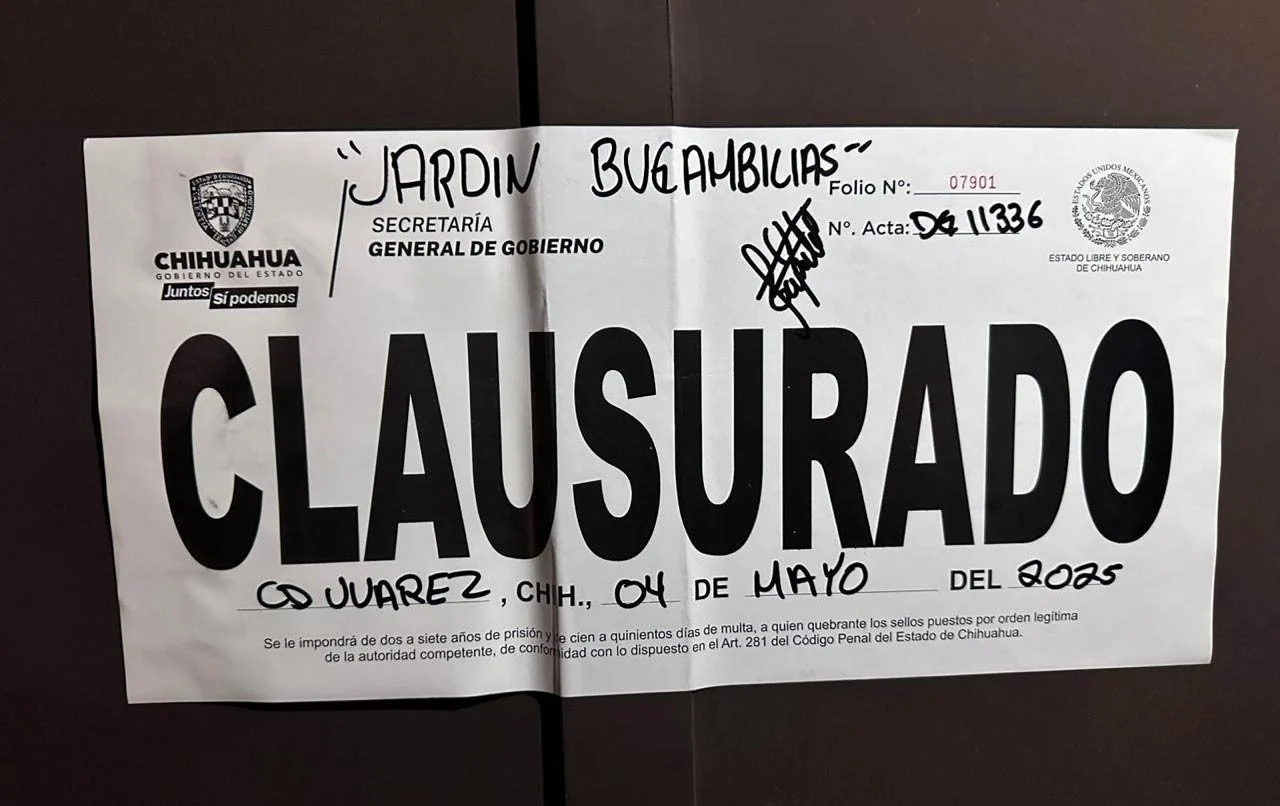 "JARDIN BUGAMBILIAS"
Folio N°: 07901
SECRETARÍA
GENERAL DE GOBIERNO
N°. Acta: DG 11336
CHIHUAHUA
GOBIERNO DEL ESTADO
Juntos Sí podemos
ESTADOS UNIDOS MEXICANOS
ESTADO LIBRE Y SOBERANO
DE CHIHUAHUA
CLAUSURADO
CD JUAREZ, CHIH., 04 DE MAYO DEL 2025
Se le impondrá de dos a siete años de prisión y de cien a quinientos días de multa, a quien quebrante los sellos puestos por orden legítima
de la autoridad competente, de conformidad con lo dispuesto en el Art. 281 del Código Penal del Estado de Chihuahua.